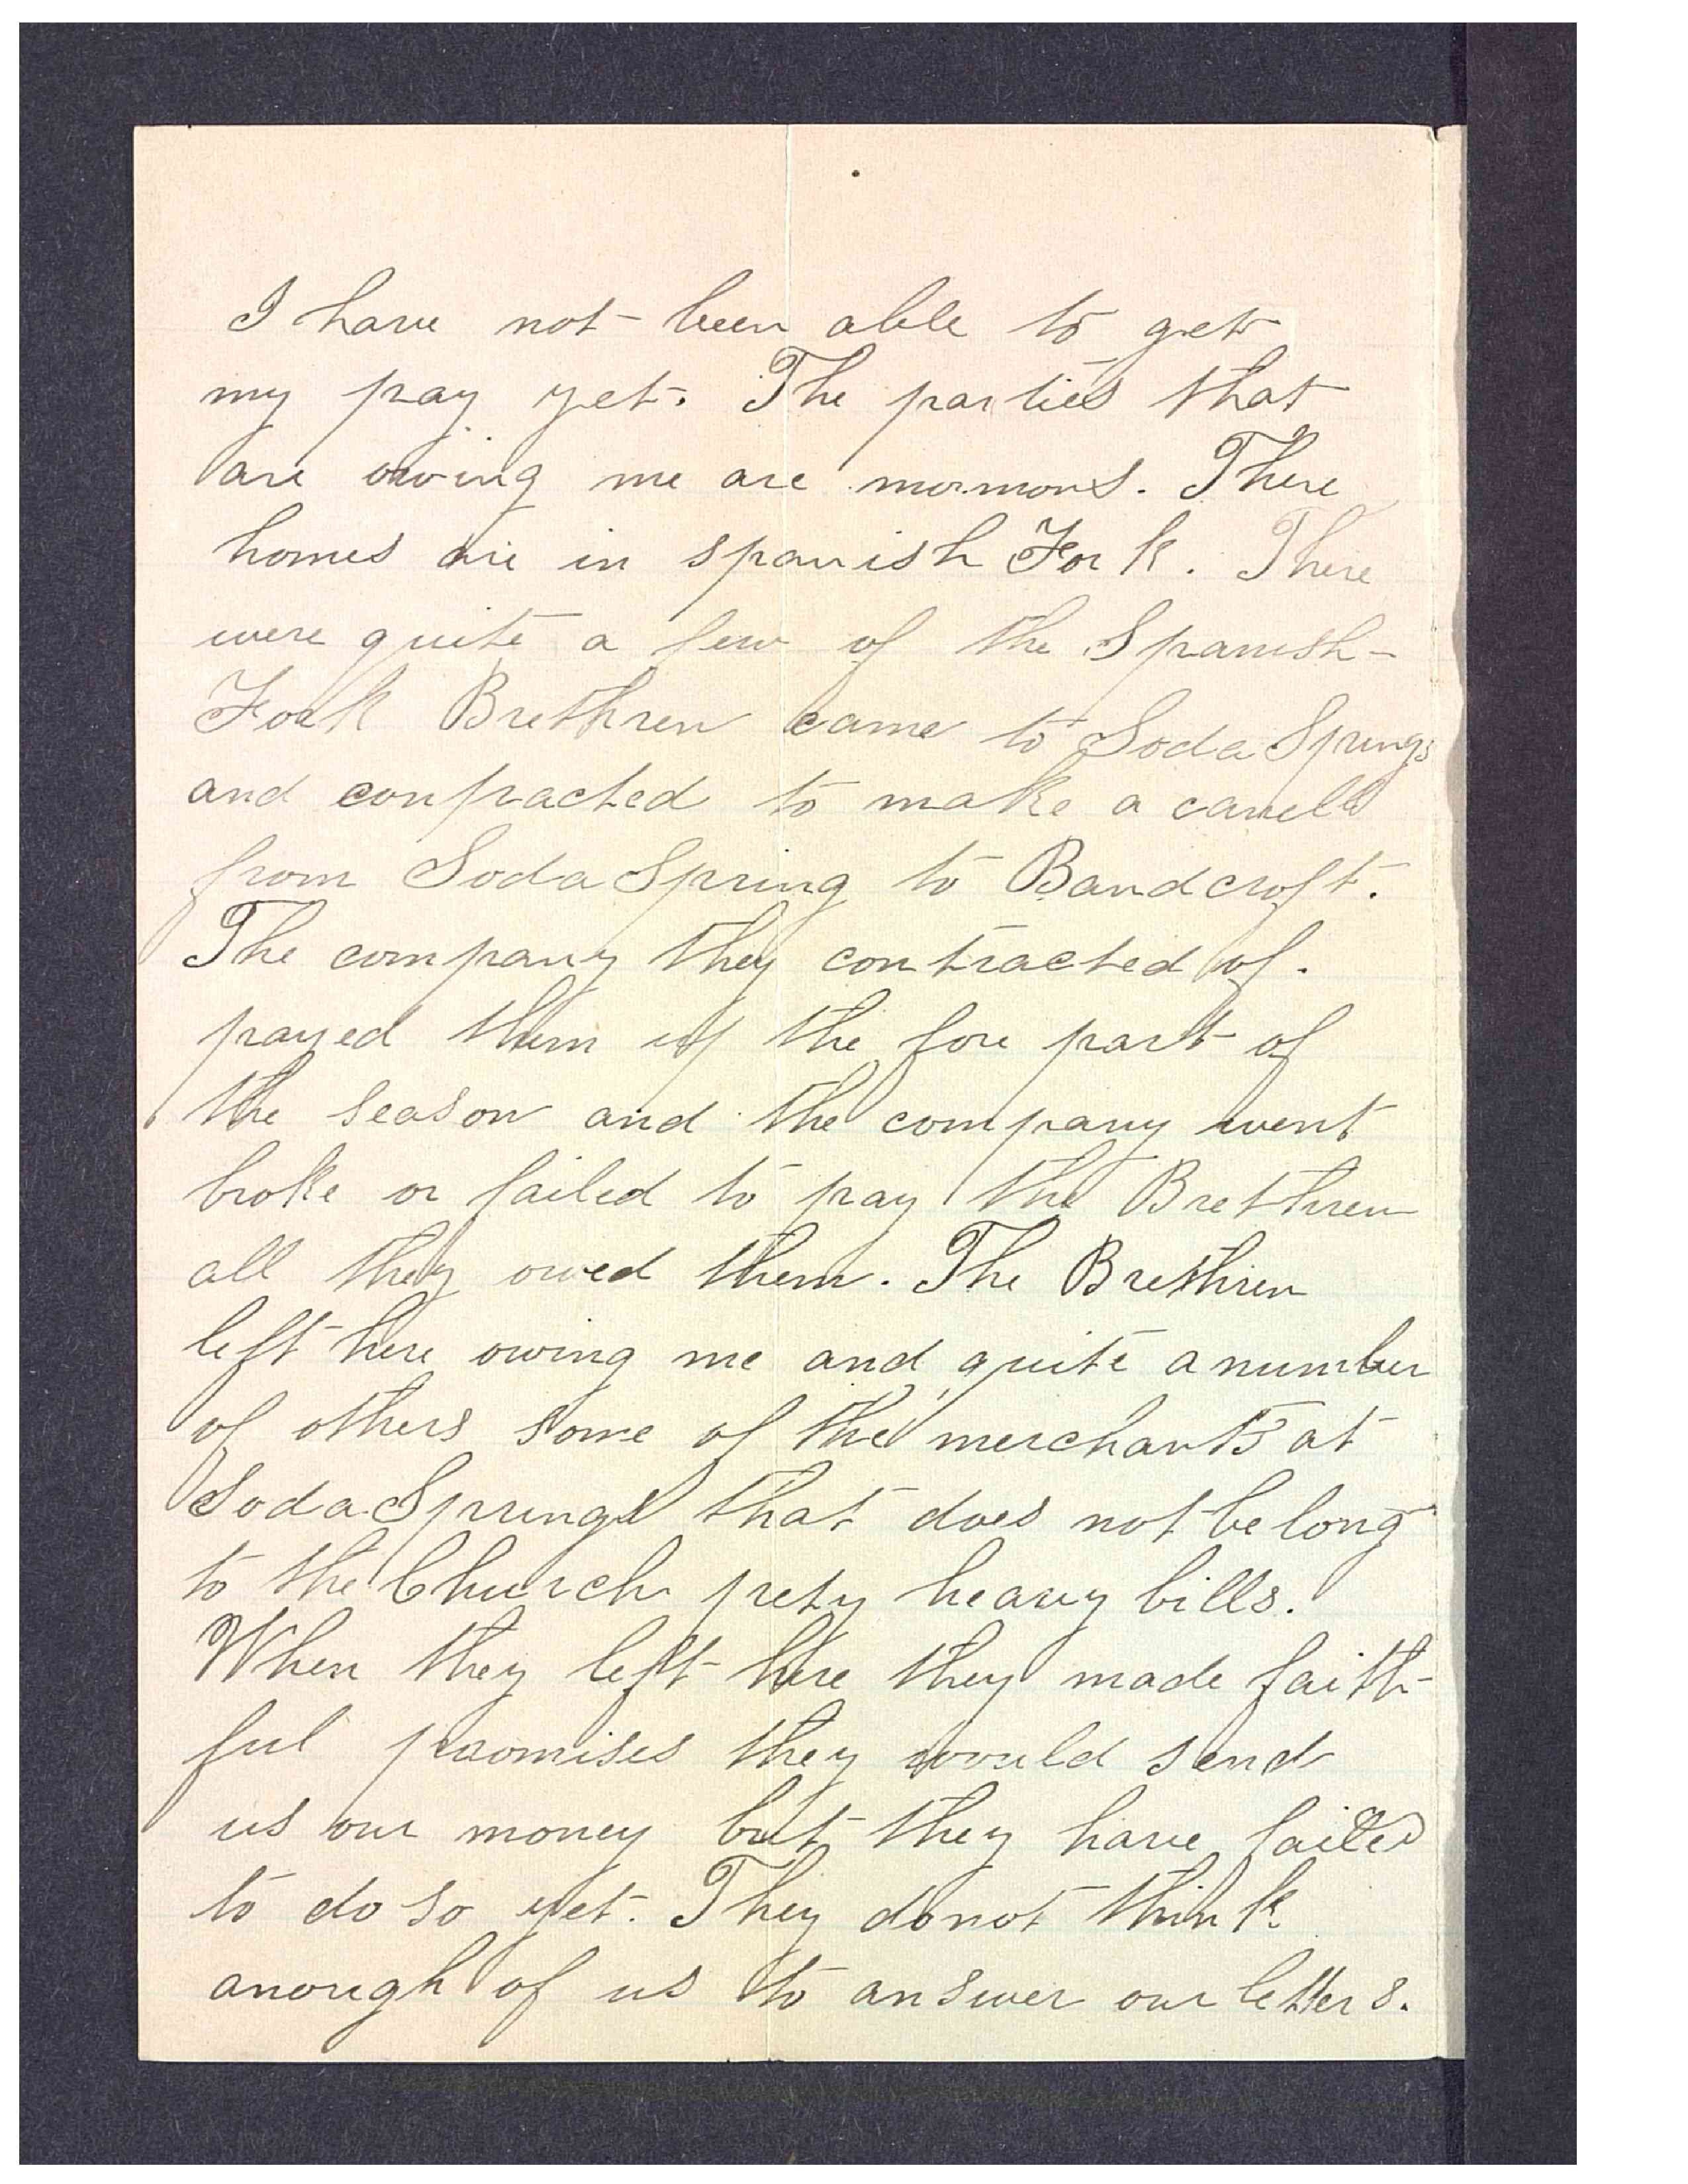 I have not been able to get
my pay yet. The parties that
are owing me are mormons. There
homes are in spanish Fork. There
were quite a few of the Spanish-
Fork Brethren came to Soda Springs
and contracted to make a canell
from Soda Spring to Bandcroft.
The company they contracted of.
payed them up the fore part of
the season and the company went
broke or failed to pay the Brethren
all they owed them. The Brethren
left here owing me and quite a number
of others some of the merchants at
Soda Springs that does not belong
to the Church prety heavy bills.
When they left here they made faith-
ful promises they would send
us our money but they have failed
to do so yet. They do not think
anough of us to answer our letters.